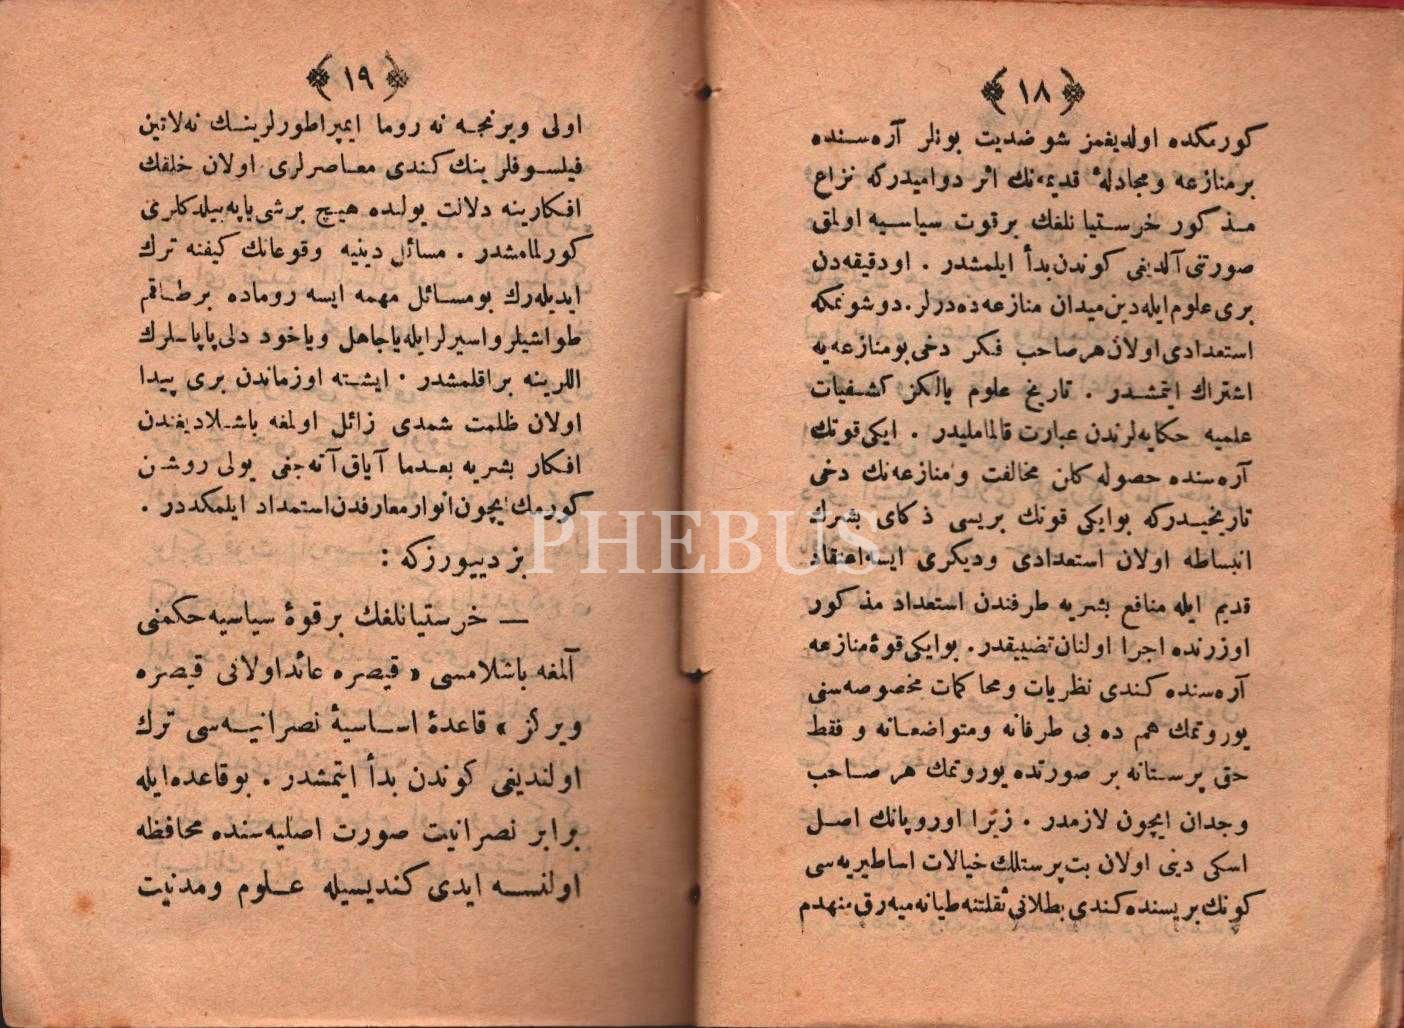 ﴿ ١٨ ﴾
كورمكده اولديغمز شو ضديت بونلر آره‌سنده
بر منازعه و مجادلهٔ قديمه‌نك اثر دواميدركه نزاع
مذكور خرستيانلغك بر قوت سياسيه اولمق
صورتنى آلديغى كوندن بدأ ايلمشدر . او دقيقه‌دن
برى علوم ايله دين ميدان منازعه‌ده‌درلر . دوشونمكه
استعدادى اولان هر صاحب فكر دخى بو منازعه‌يه
اشتراك ايتمشدر . تاريخ علوم يالكز كشفيات
علميه حكايه‌لرندن عبارت قالماميلدر . ايكى قوتك
آره‌سنده حصوله كلن مخالفت و منازعه‌نك دخى
تاريخيدركه بو ايكى قوتك بريسى ذكاى بشرك
انبساطه اولان استعدادى و ديكرى ايسه اعتقاد
قديم ايله منافع بشريه طرفندن استعداد مذكور
اوزرنده اجرا اولنان تضييقدر . بو ايكى قوهٔ منازعه
آره‌سنده كندى نظريات و محاكمات مخصوصه‌سنى
يوروتمك هم ده بى طرفانه و متواضعانه و فقط
حق پرستانه بر صورتده يوروتمك هر صاحب
وجدان ايچون لازمدر . زيرا اوروپانك اصل
اسكى دينى اولان بت پرستلك خيالات اساطيريه‌سى
كونك بريسنده كندى بطلانى ثقلتنه طيانه‌ميه‌رق منهدم
﴿ ١٩ ﴾
اولى ويرنجه نه روما ايمپراطورلرينك نه لاتين
فيلسوفلرينك كندى معاصرلرى اولان خلقك
افكارينه دلالت يولنده هيچ بر شى ياپه‌بيلدكلرى
كورلمامشدر . مسائل دينيه وقوعاتك كيفنه ترك
ايديله‌رك بو مسائل مهمه ايسه روماده بر طاقم
طواشيلر و اسيرلر ايله يا جاهل و ياخود دلى پاپاسلرك
اللرينه براقلمشدر . ايشته او زماندن برى پيدا
اولان ظلمت شمدى زائل اولمغه باشلاديغندن
افكار بشريه بعدما آياق آته‌جغى يولى روشن
كورمك ايچون انوار معارفدن استمداد ايلمكده‌در .
بز دييورزكه :
— خرستيانلغك بر قوهٔ سياسيه حكمنى
آلمغه باشلامسى « قيصره عائد اولانى قيصره
ويركز » قاعدهٔ اساسيهٔ نصرانيه‌سى ترك
اولنديغى كوندن بدأ ايتمشدر . بو قاعده ايله
برابر نصرانيت صورت اصليه‌سنده محافظه
اولنسه ايدى كنديسيله علوم و مدنيت
PHEBUS